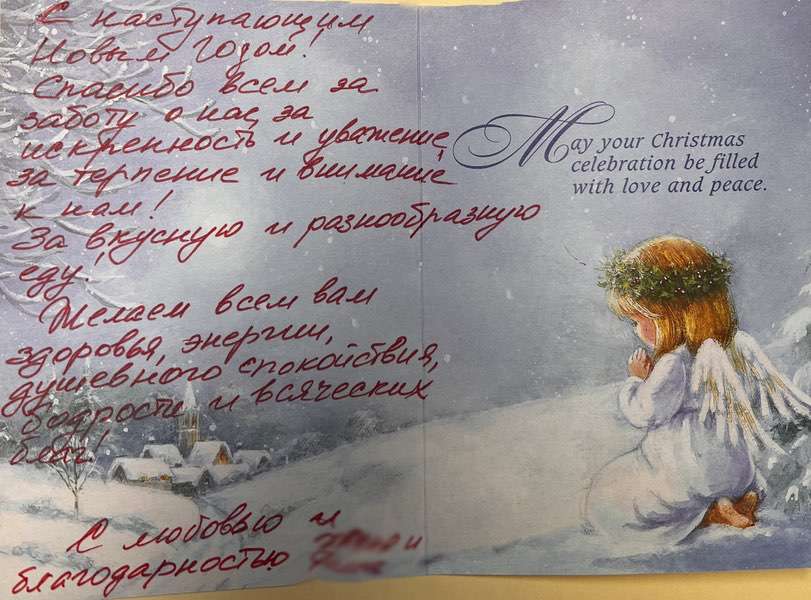 С наступающим
Новым Годом!
Спасибо всем за
заботу о нас, за
искренность и уважение,
за терпение и внимание
к нам!
За вкусную и разнообразную
еду!
Желаем всем вам
здоровья, энергии,
душевного спокойствия,
бодрости и всяческих
благ!
С любовью и
благодарностью
и
May your Christmas
celebration be filled
with love and peace.